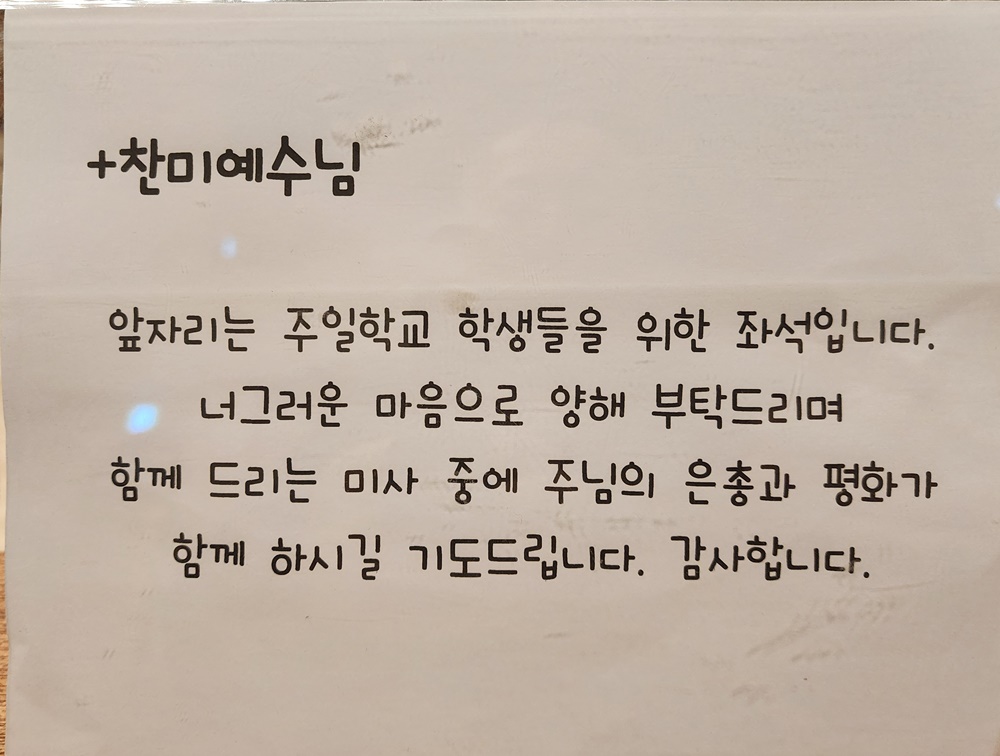 +찬미예수님
앞자리는 주일학교 학생들을 위한 좌석입니다.
너그러운 마음으로 양해 부탁드리며
함께 드리는 미사 중에 주님의 은총과 평화가
함께 하시길 기도드립니다. 감사합니다.